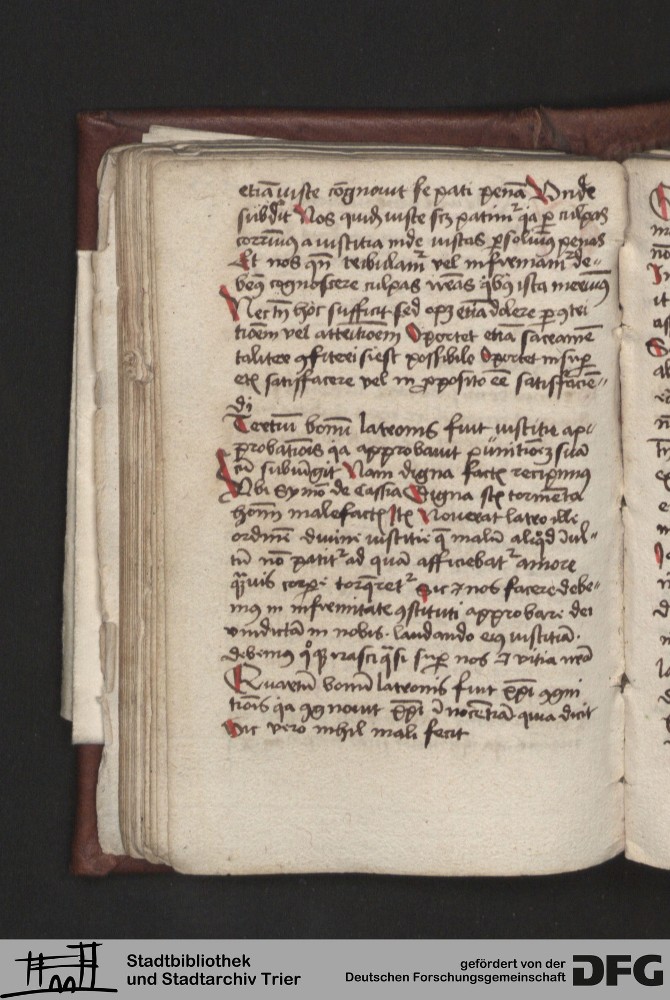 etiā iuste cōgnouit se pati penā Vnde
subdit Nos quidē iuste scz patimur qa p culpas
corruim9 a iusticia inde iustas psoluim9 penas
Et nos qn tribulamr vel infirmamr de
bem9 cognoscere culpas nr̄as qb9 ista meruim9
Nec tn hoc sufficit sed opz etiā dolere p 9tri
tioēm vel attritioēm Oportet etiā sacramē
taliter 9fiteri si est possibile Oportet insup
et satisfacere vel in pposito eē satisfaciē
di
Tertiū bonū latronis fuit iusticie ap
probationis qa approbauit punitionē suā
cū subiūgit Nam digna factis recipimus
Vbi Symō de Cassia Digna sūt tormēta
hoim malefactis Itē Nouerat latro ille
ordinē diuine iusticie q malū aliqd īul
tū nō patitr ad quā afficiebatr amore
quis corpe torqretr Sic et nos facere debe
mus in infirmitate 9stituti approbare dei
vindictā in nobis laudando ei9 iusticiā
debem9 irasci qsi sup nos et vitia nr̄a
Quartū bonū latronis fuit xp̄i 9gni
tionis qa 9gnouit xp̄i īnocētiā quia dicit
Hic vero nihil mali fecit
Stadtbibliothek
und Stadtarchiv Trier
gefördert von der
Deutschen Forschungsgemeinschaft
DFG